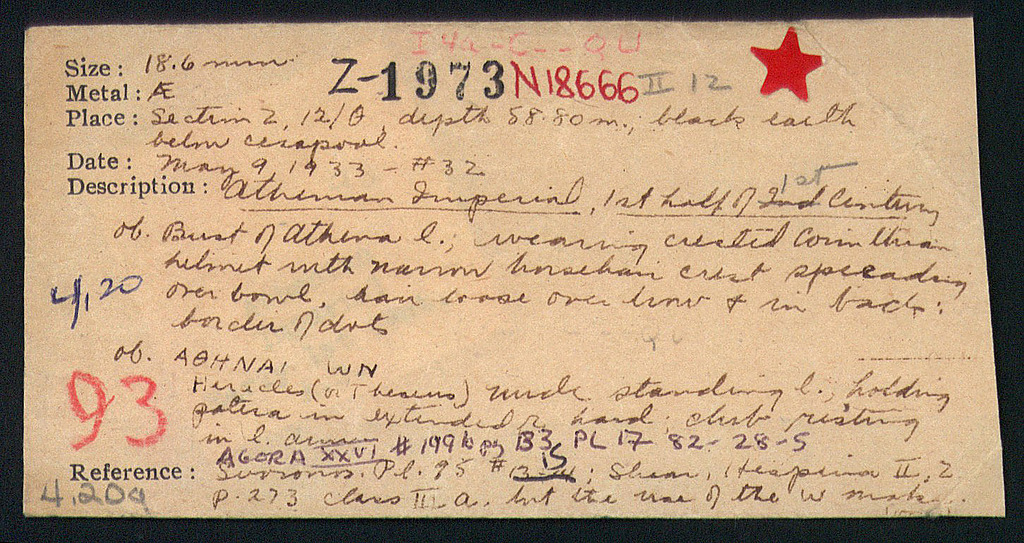 Size : 18.6 mm
Z-1973 N18666 II 12
Metal : Æ
Place : Section Z, 12/Θ, depth 58.80 m.; black earth
below cesspool.
Date : May 9 1933 - #32
1st
Description : Athenian Imperial, 1st half of 2nd Century
ob. Bust of Athena l.; wearing crested Corinthian
helmet with narrow horsehair crest spreading
4,20
over bowl, hair loose over brow & in back:
border of dots
ob. ΑΘΗΝΑΙ WN
93
Heracles (or Theseus) nude standing l.; holding
patera in extended r. hand, club resting
in l. arm
AGORA XXVI # 199 B3 PL 17 82-28-5
15
Reference : Svoronos Pl. 95 #; Shear, Hesperia II, 2
4,20g
p. 273 class III a. but the use of the W